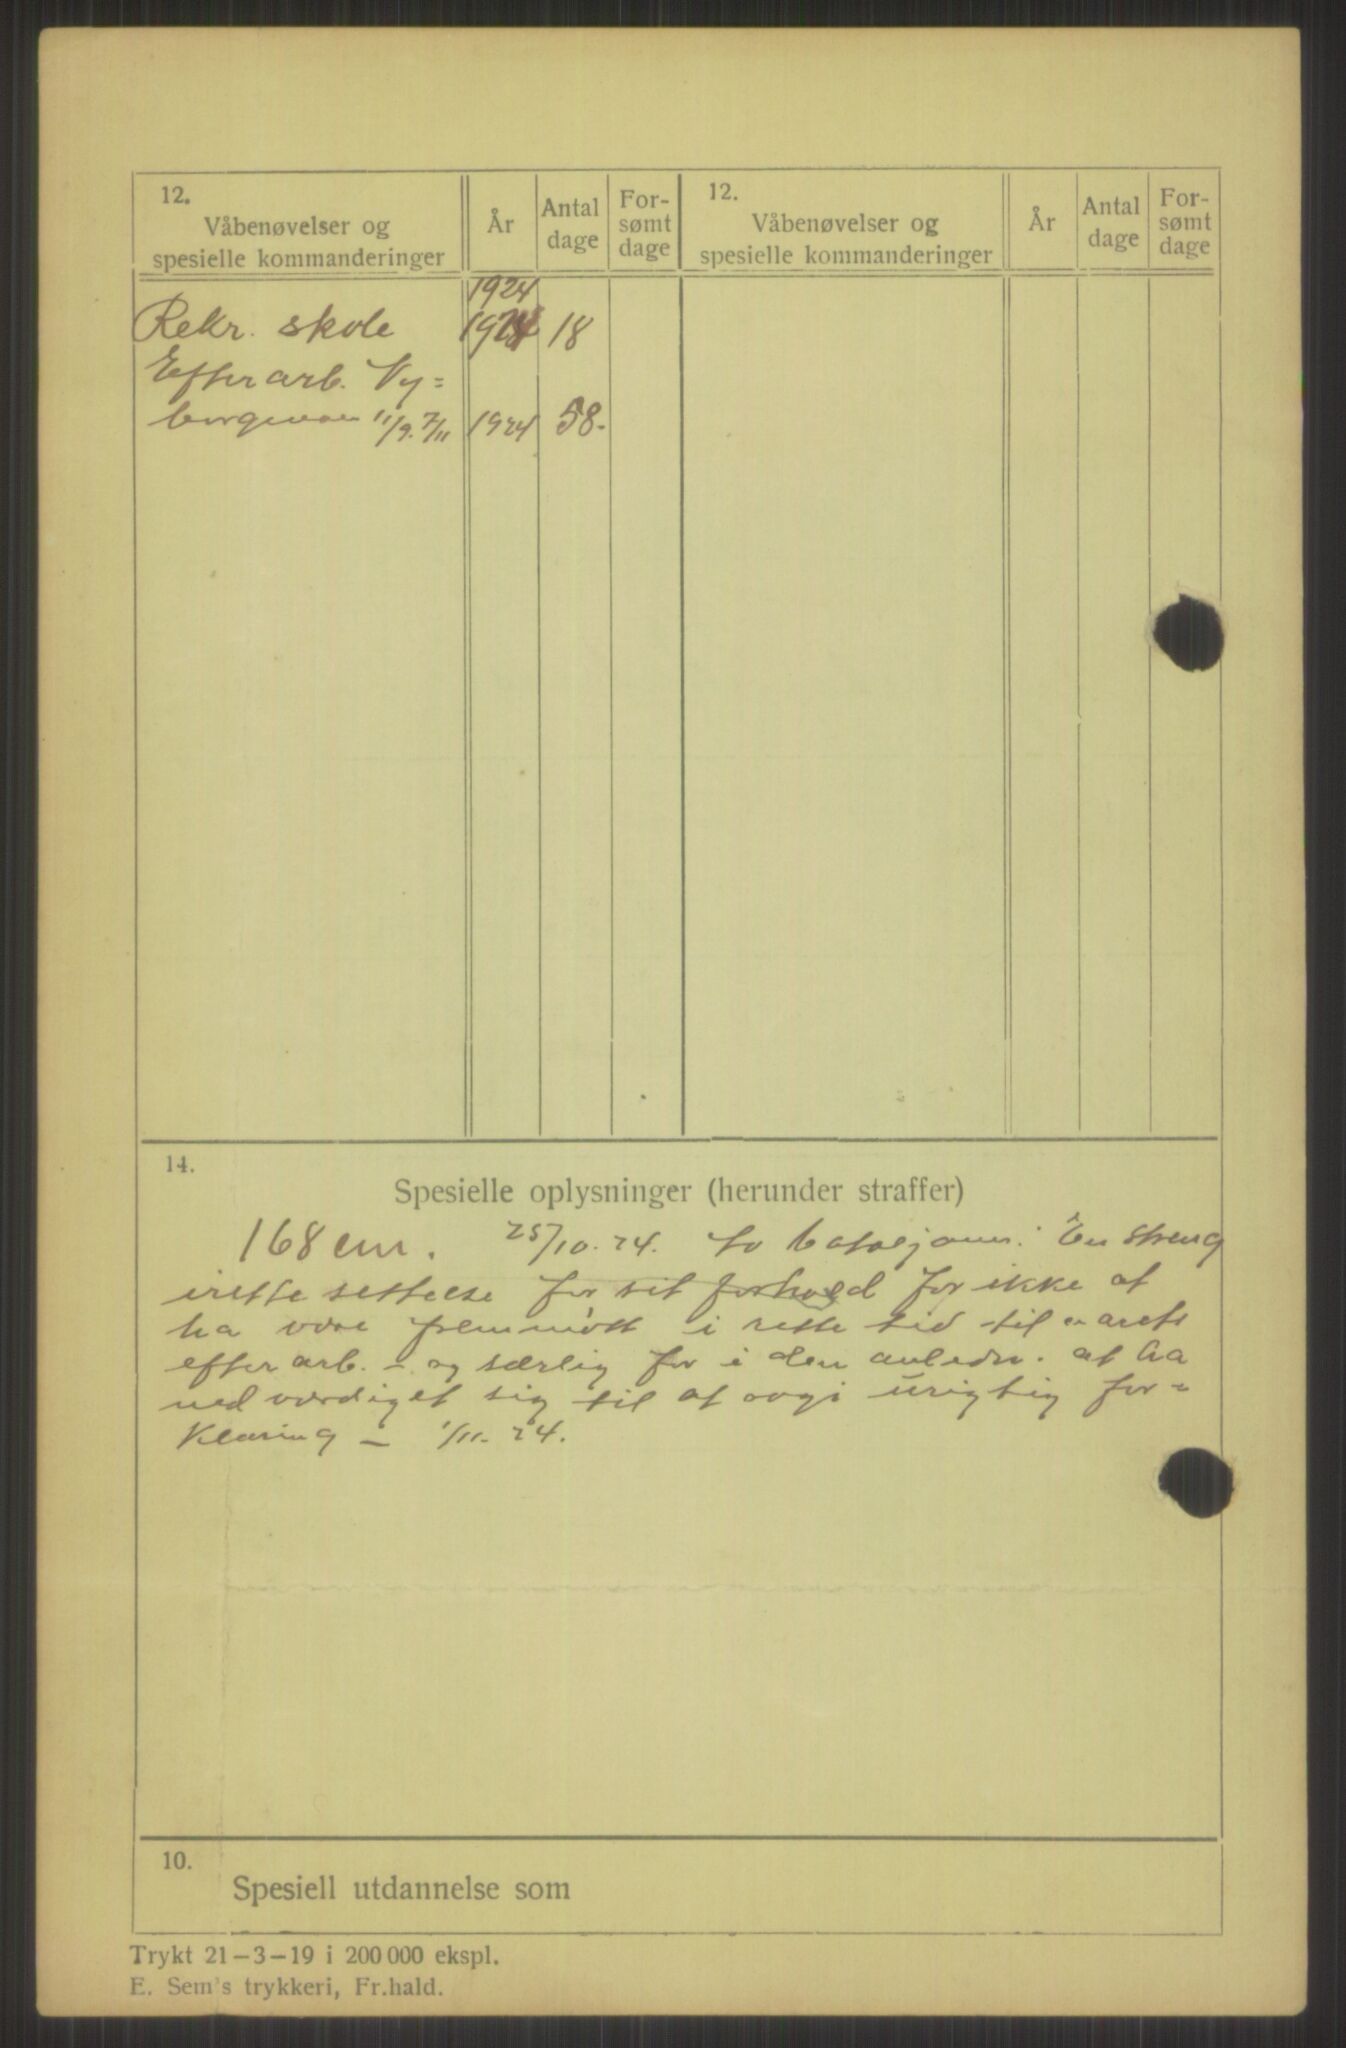 12.
Våbenøvelser og
spesielle kommanderinger
År
Antal
dage
For-
sømt
dage
12.
Våbenøvelser og
spesielle kommanderinger
År
Antal
dage
For-
sømt
dage
1924
Rekr. skole 1924 18
Efterarb. Ny=
borgmoen 11/9. 7/11 1924 58.
14.
Spesielle oplysninger (herunder straffer)
168 cm. 25/10. 24. En streng
irettesettelse for sit forhold for ikke at
ha være fremmøtt i rette tid til årets
efterarb. - og særlig for i den anledn. at ha
nedværdiget sig til at avgi urigtig for=
klaring - 1/11. 24.
10.
Spesiell utdannelse som
Trykt 21-3-19 i 200 000 ekspl.
E. Sem's trykkeri, Fr.hald.